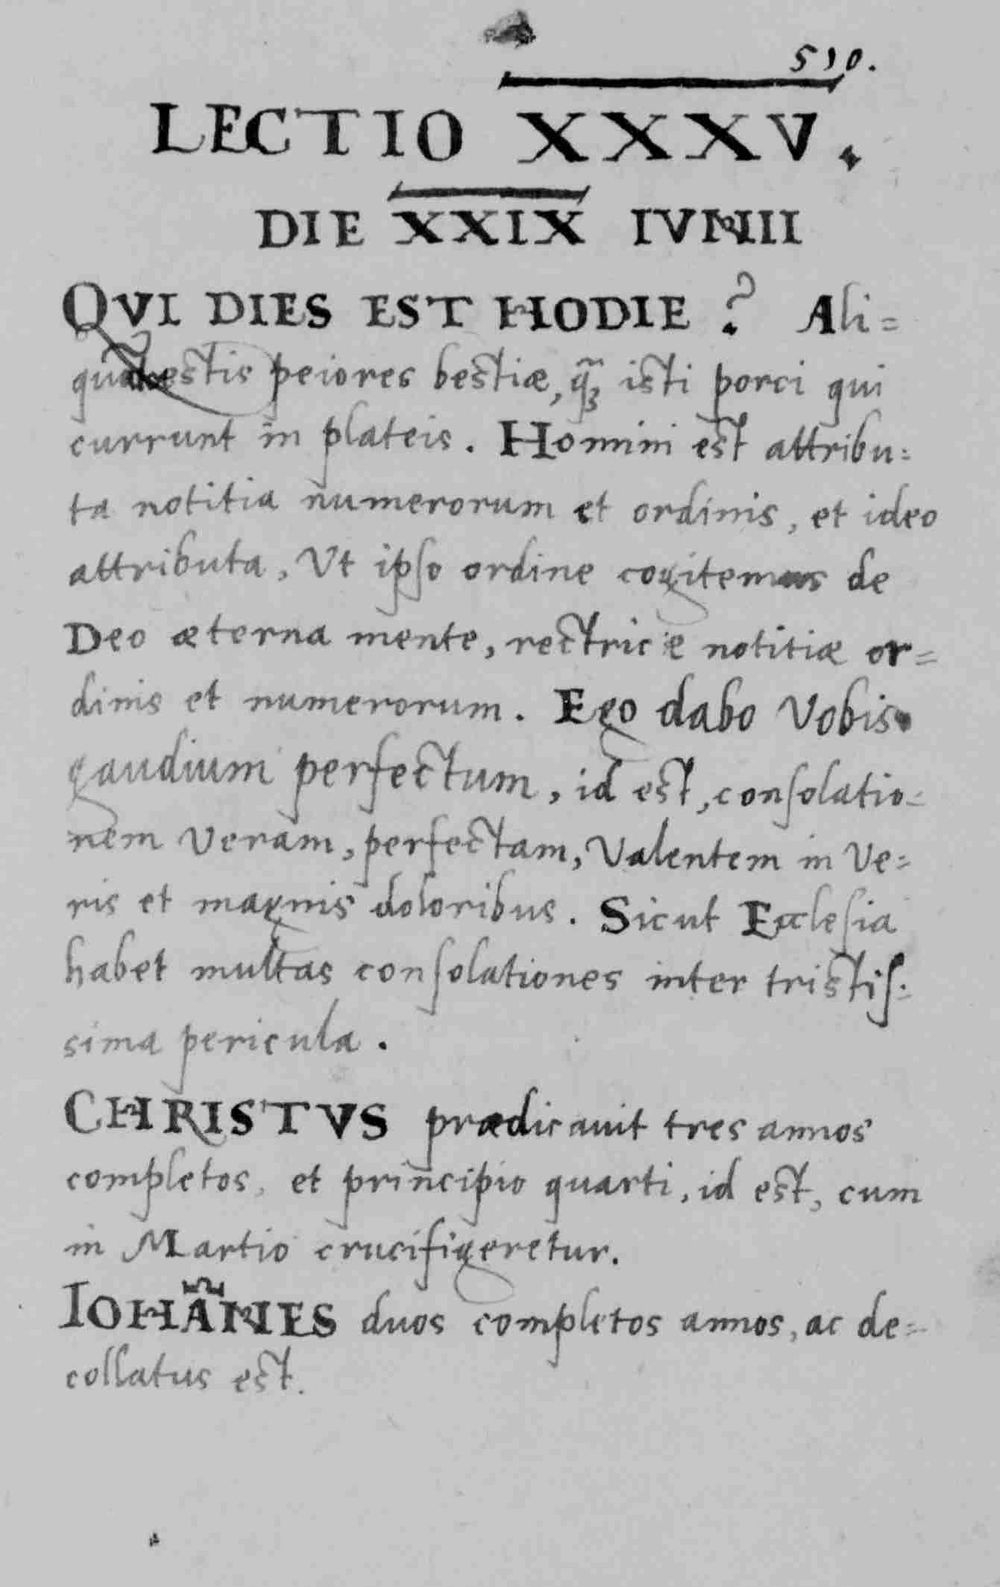 510.
LECTIO XXXV.
DIE XXIX IVNII
QVI DIES EST HODIE? Ali=
estis peiores bestiæ, q̃ꝫ isti porci qui
currunt in plateis. Homini est attribu=
ta notitia numerorum et ordinis, et ideo
attributa, Vt ipso ordine cogitemus de
Deo æterna mente, rectrice notitiæ or=
dinis et numerorum. Ego dabo Vobis
gaudium perfectum, id est, consolatio=
nem Veram, perfectam, Valentem in Ve=
ris et magnis doloribus. Sicut Ecclesia
habet multas consolationes inter tristis=
sima pericula.
CHRISTVS prædicauit tres annos
completos, et principio quarti, id est, cum
in Martio crucifigeretur.
IOHÃNES duos completos annos, ac de=
collatus est.